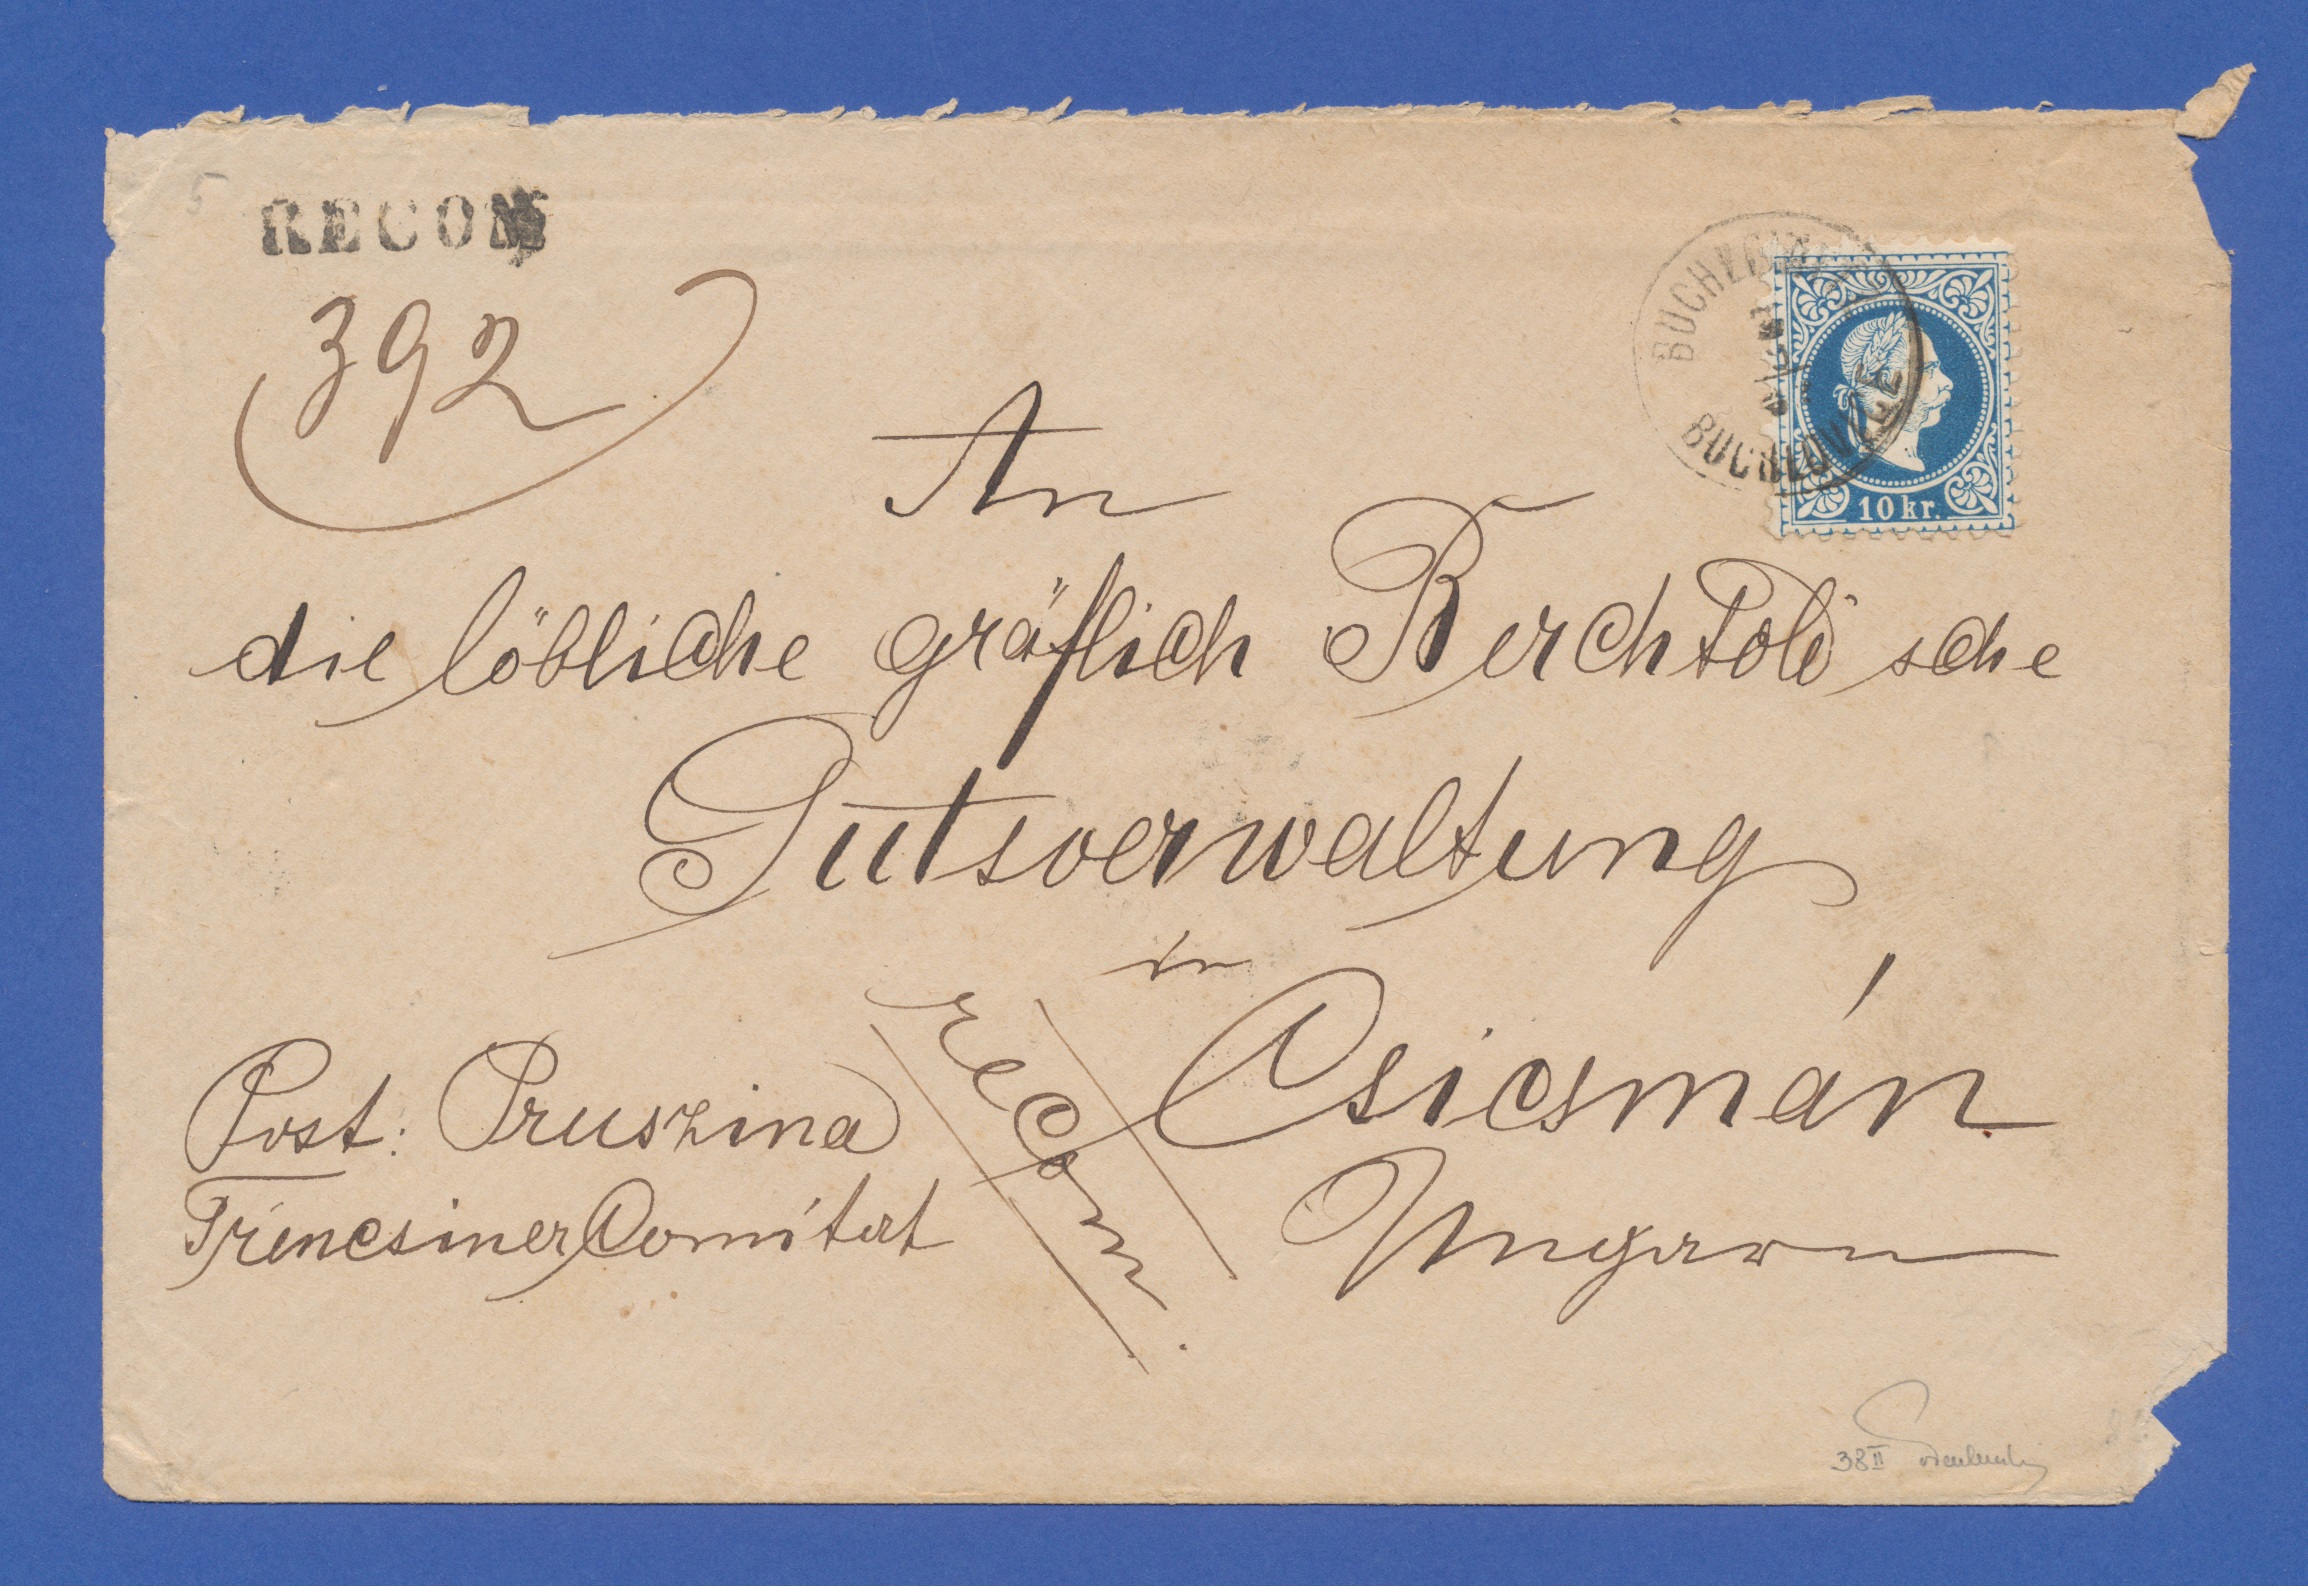 RECOM
392
BUCHLOWITZ
BUCHLOVICE
10 kr.
An
die löbliche gräflich Berchtold'sche
Gutsverwaltung
in
Csicsmán
Ungarn
Recom.
Post: Pruszina
Trencsiner Comitat
38 II